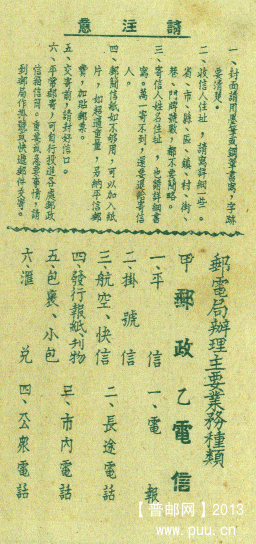 請注意
一、封面請用墨筆或鋼筆書寫,字跡
要清楚。
二、收信人住址,請寫詳細一些。
省、市、縣、區、鎮、村、街、
巷、門牌號數,都不要簡略。
三、寄信人姓名住址,也請詳細書
寫。萬一寄不到,還要退給寄信
人。
四、郵簡信紙如不夠用,可以加入紙
片,如超過重量,另納平信郵
費,加貼郵票。
五、交寄前,請封好信口。
六、平常郵寄,可自行投進各處郵政
信箱信筒。重要或急要事情,請
到郵局作掛號或快遞郵件交寄。
郵電局辦理主要業務種類
甲郵政
乙電信
一、平信
一、電報
二、掛號信
二、長途電話
三、航空、快信
三、市內電話
四、發行報紙、刊物
四、公眾電話
五、包裹、小包
六、滙兌
【普邮网】2013
www.puu.cn